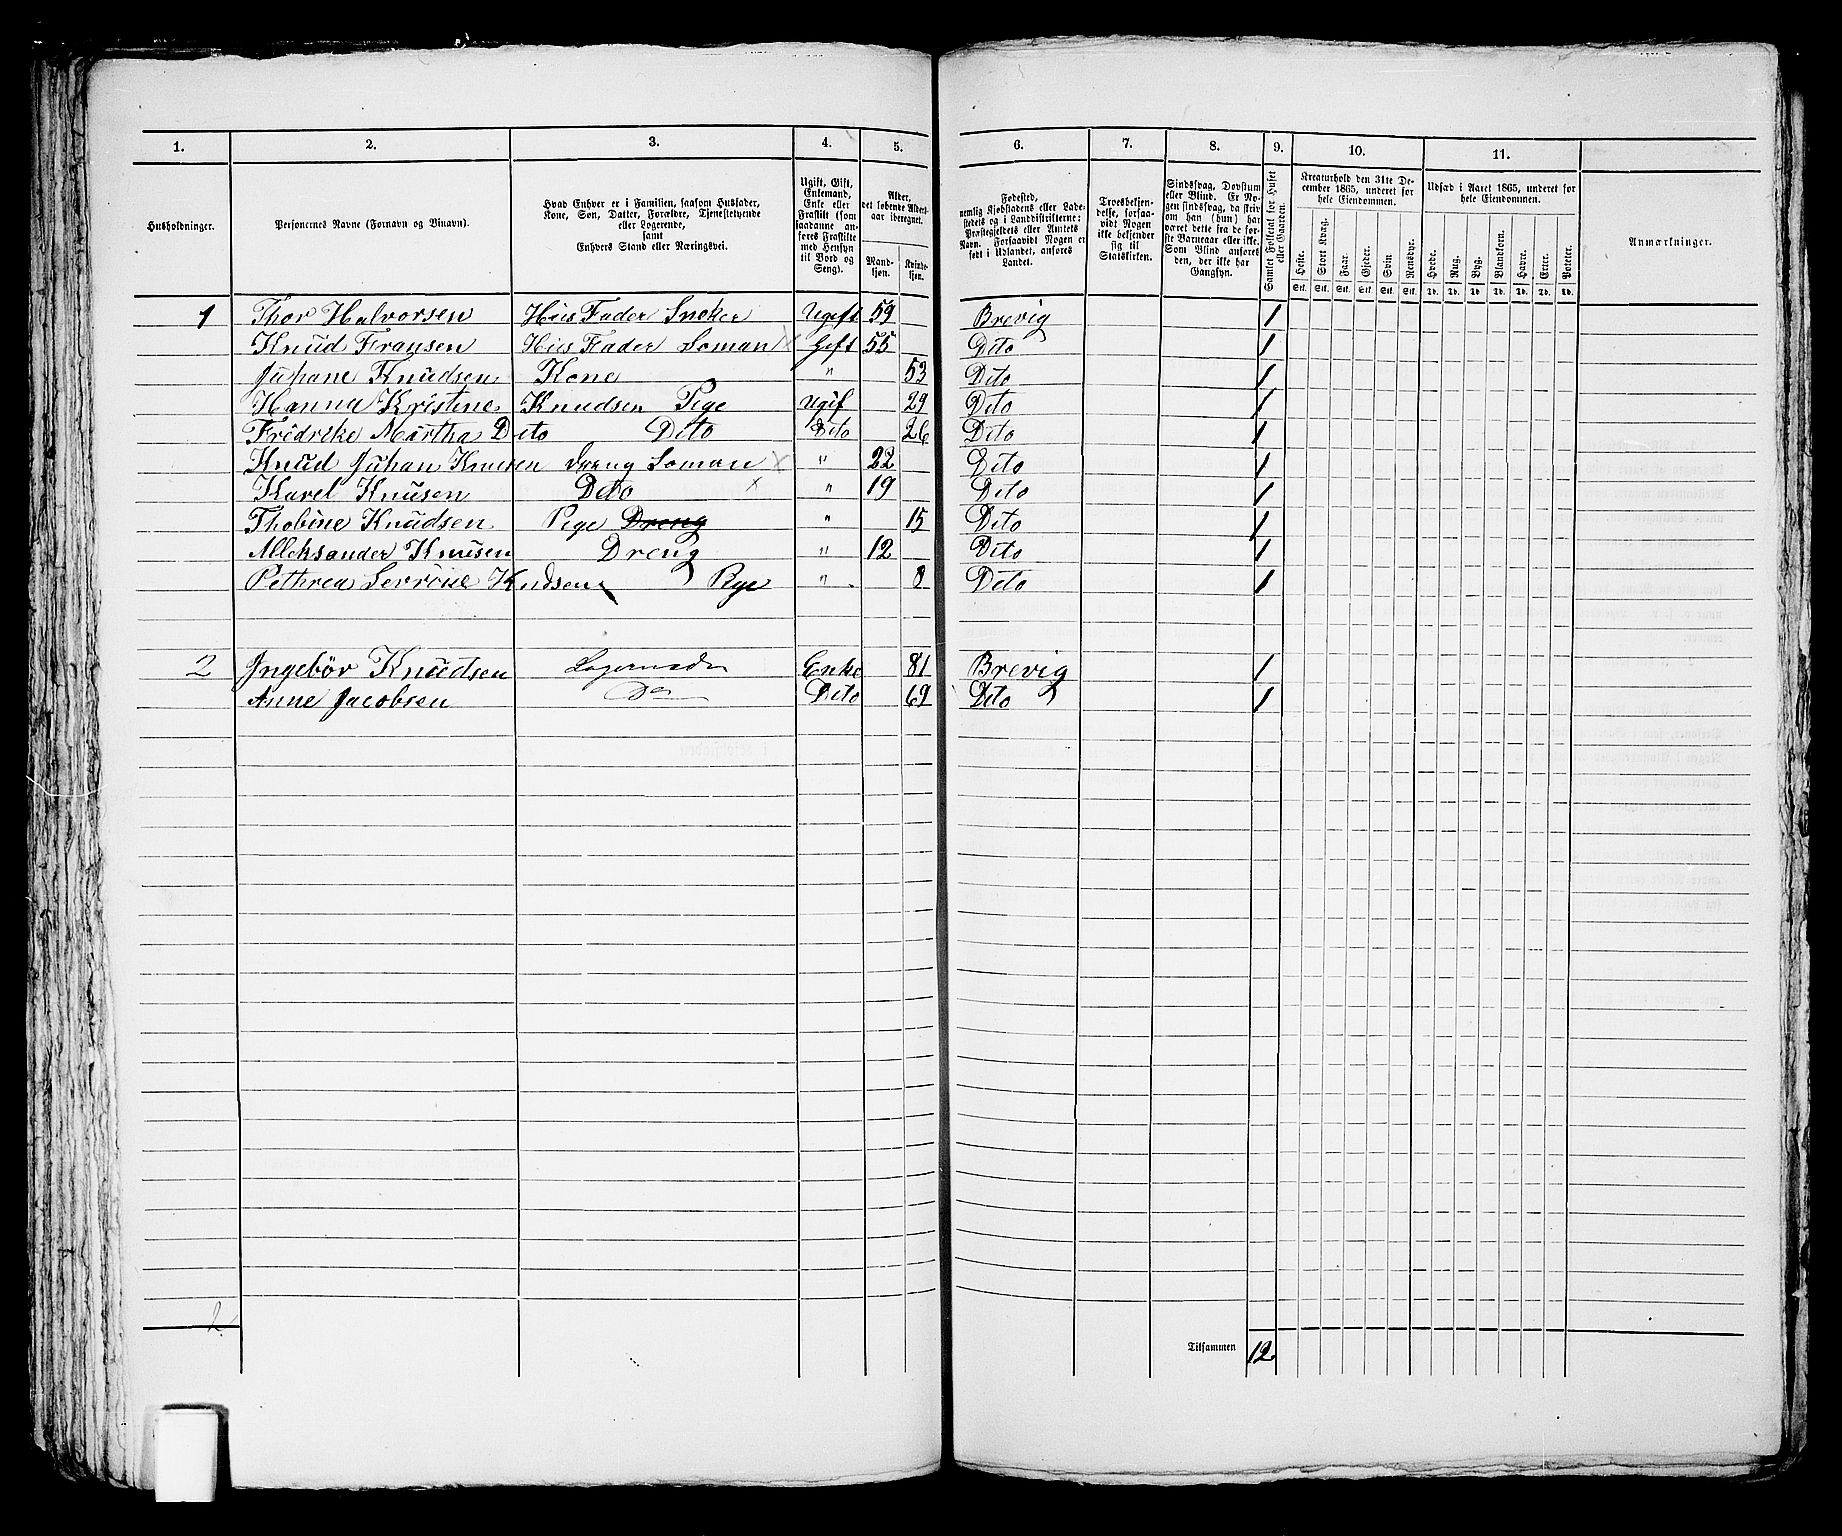 1. 2. 3. 4. 5. 6. 7. 8. 9. 10. 11.
Husholdninger.
Personernes Navne (Fornavn og Binavn).
Hvad Enhver er i Familien, saasom Husfader,
Kone, Søn, Datter, Forældre, Tjenestetyende
eller Logerende,
samt
Enhvers Stand eller Næringsvei.
Ugift, Gift,
Enkemand,
Enke eller
Fraskilt (som
saadanne an-
føres Fraskilte
med Hensyn
til Bord og
Seng).
Alder,
det løbende Alders-
aar iberegnet.
Mand-
kjøn.
Kvinde-
kjøn.
Fødested,
nemlig Kjøbstadens eller Lade-
stedets og i Landdistrikterne:
Præstegjeldets eller Amtets
Navn. Forsaavidt Nogen er
født i Udlandet, anføres
Landet.
Troesbekjen-
delse, forsaa-
vidt Nogen
ikke bekjender
sig til
Statskirken.
Sindssvag, Døvstum
eller Blind. Er No-
gen sindssvag, da skriv
om han (hun) har
været dette fra de før-
ste Barneaar eller ikke.
Som Blind anføres
den, der ikke har
Gangsyn.
Samlet Folketal for Huset
eller Gaarden.
Kreaturhold den 31te De-
cember 1865, underet for
hele Eiendommen.
Heste. Stort Kvæg. Faar. Gjeder. Svin. Rensdyr.
Stk. Stk. Stk. Stk. Stk. Stk.
Udsæd i Aaret 1865, underet for
hele Eiendommen.
Hvede. Rug. Byg. Blandkorn. Havre. Erter. Poteter.
Td. Td. Td. Td. Td. Td. Td.
Anmærkninger.
1 Thor Halvorsen Hüs Fader Sneker Ugift 59 Brevig 1
Knüd Fransen Hüs Fader Soman X Gift 55 Dito 1
Juhane Knüdsen Kone " 53 Dito 1
Hanna Kristine Knudsen Pige Ugif 29 Dito 1
Fredrike Martha Dito Dito Dito 26 Dito 1
Knüd Juhan Knusen Dreng Soman X " 22 Dito 1
Karel Knüsen Dito X " 19 Dito 1
Thobine Knüdsen Pige Dreng " 15 Dito 1
Alleksander Knusen Dreng " 12 Dito 1
Pethrea Serrine Kndsen Pige " 8 Dito 1
2 Ingebör Knüdsen Logerende Enke 81 Brevig 1
Anne Jacobsen Do Dito 69 Dito 1
2
Tilsammen 12